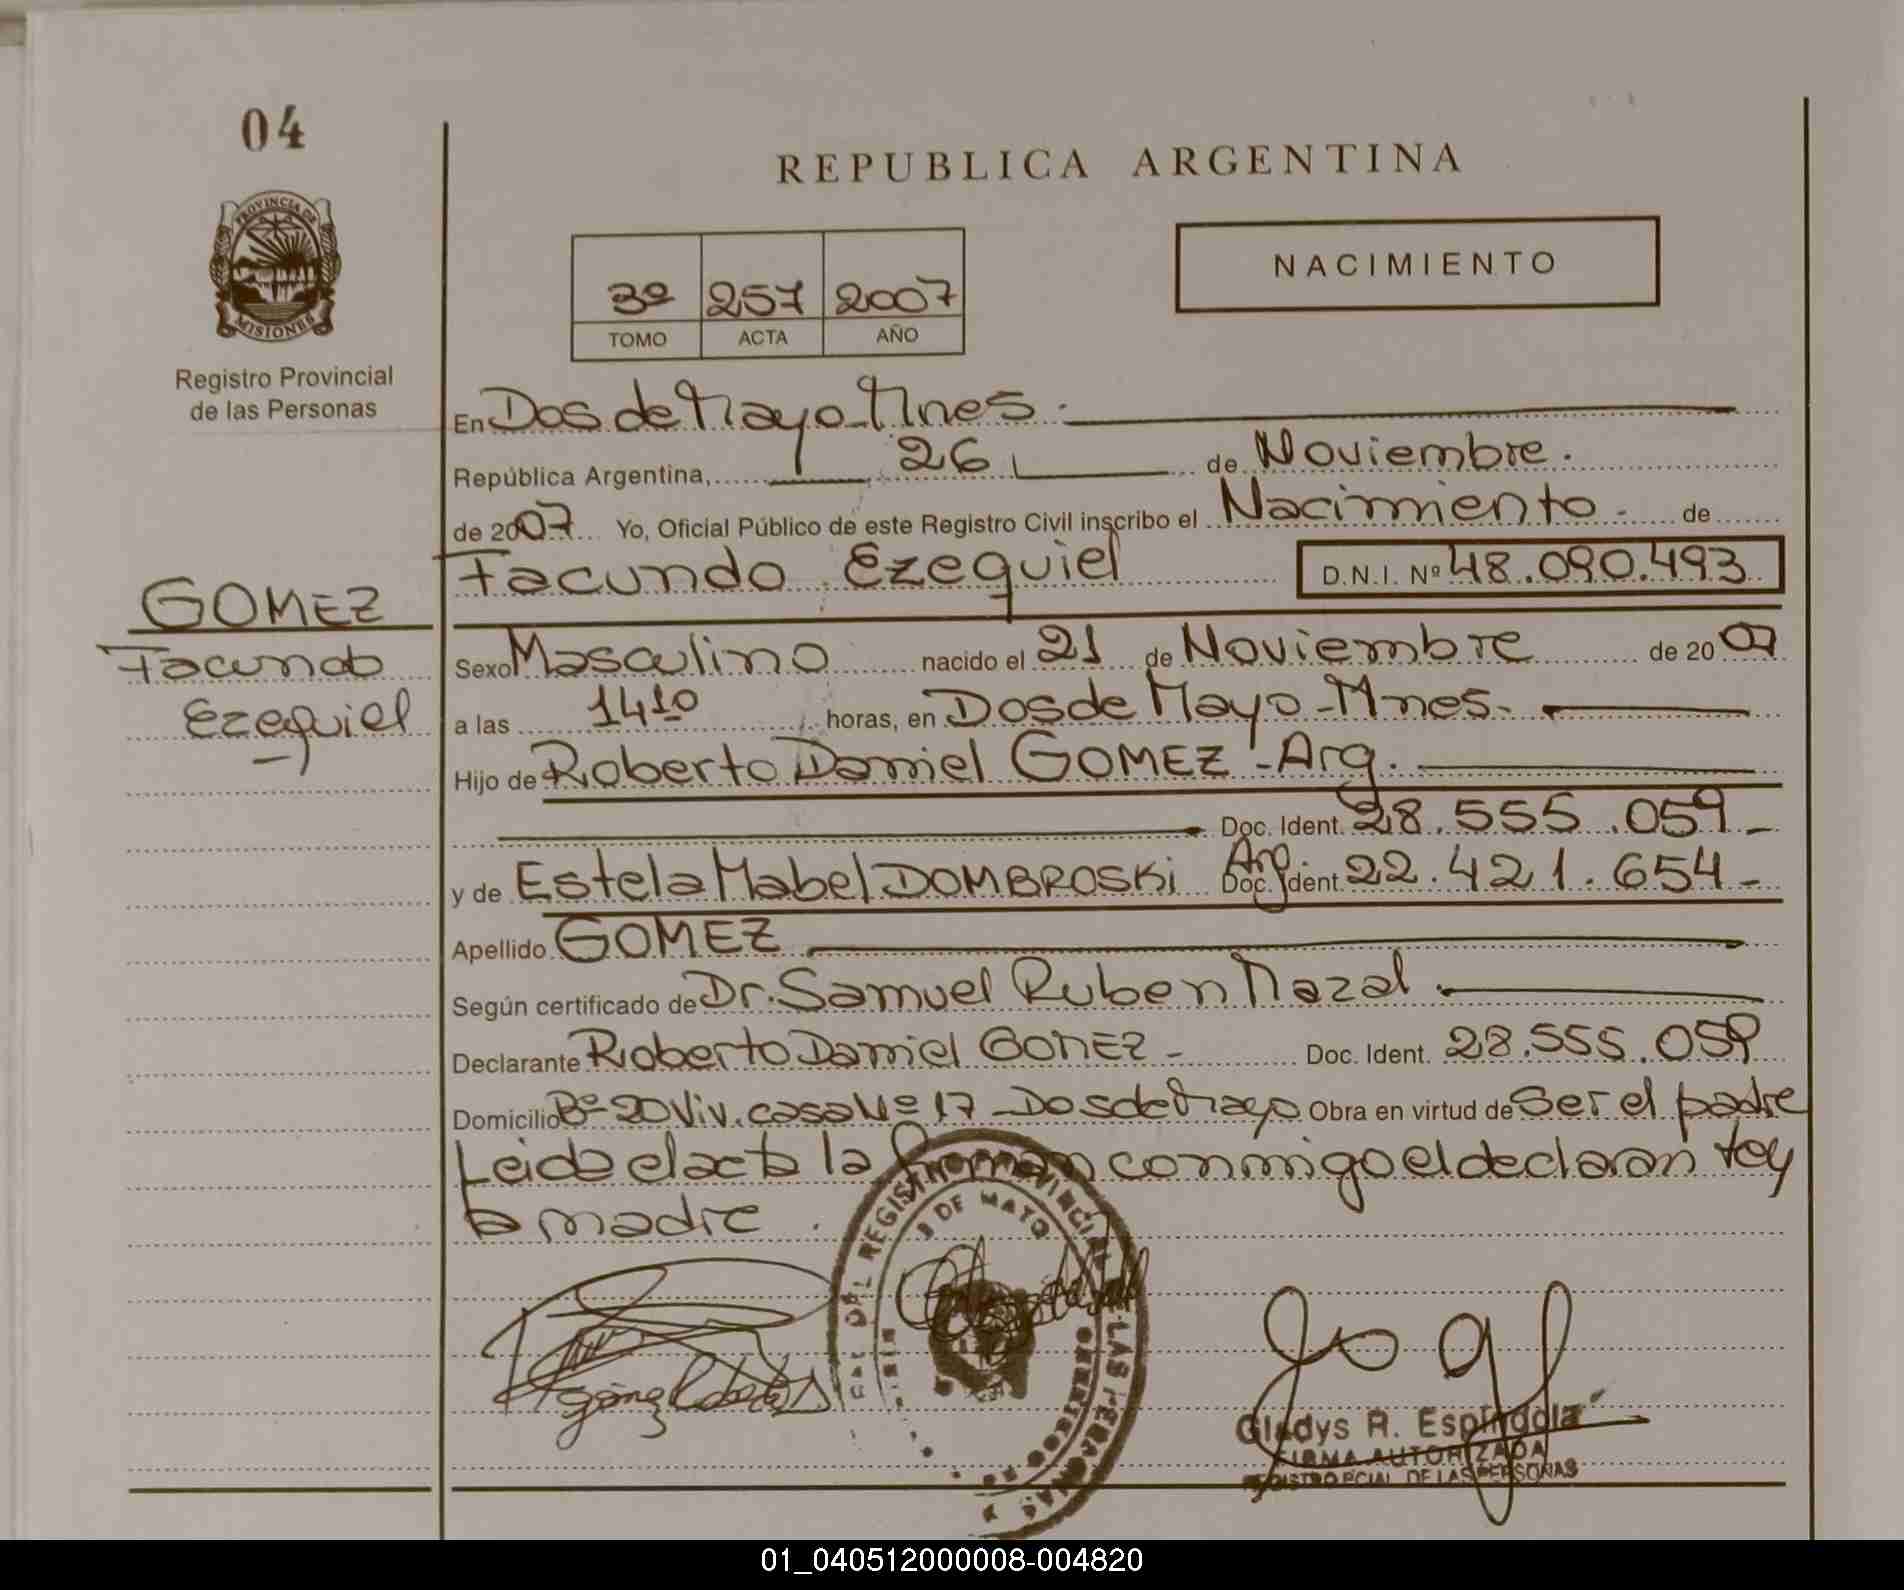 04
PROVINCIA DE
MISIONES
Registro Provincial
de las Personas
GOMEZ
Facundo
Ezequiel
REPUBLICA ARGENTINA
3º 257 2007
TOMO ACTA AÑO
NACIMIENTO
En Dos de Mayo - Mnes.
República Argentina, 26 de Noviembre.
de 2007 Yo, Oficial Público de este Registro Civil inscribo el Nacimiento - de
Facundo Ezequiel D.N.I. Nº 48.090.493
Sexo Masculino nacido el 21 de Noviembre de 2007
a las 14 10 horas, en Dos de Mayo - Mnes.
Hijo de Roberto Daniel GOMEZ - Arg.
Doc. Ident. 28.555.059 -
y de Estela Mabel DOMBROSKi Arg. Doc. Ident. 22.421.654 -
Apellido GOMEZ
Según certificado de Dr. Samuel Ruben Nazal.
Declarante Roberto Daniel GOMEZ - Doc. Ident. 28.555.059
Domicilio Bº 20 Viv. casa Nº 17 - Dos de Mayo Obra en virtud de Ser el padre
Leida el acta la firman conmigo el declaran te y
la madre.
DEL REGISTRO PROVINCIAL DE LAS PERSONAS
DE MAYO
Gladys R. Espindola
FIRMA AUTORIZADA
REGISTRO PCIAL. DE LAS PERSONAS
01_040512000008-004820